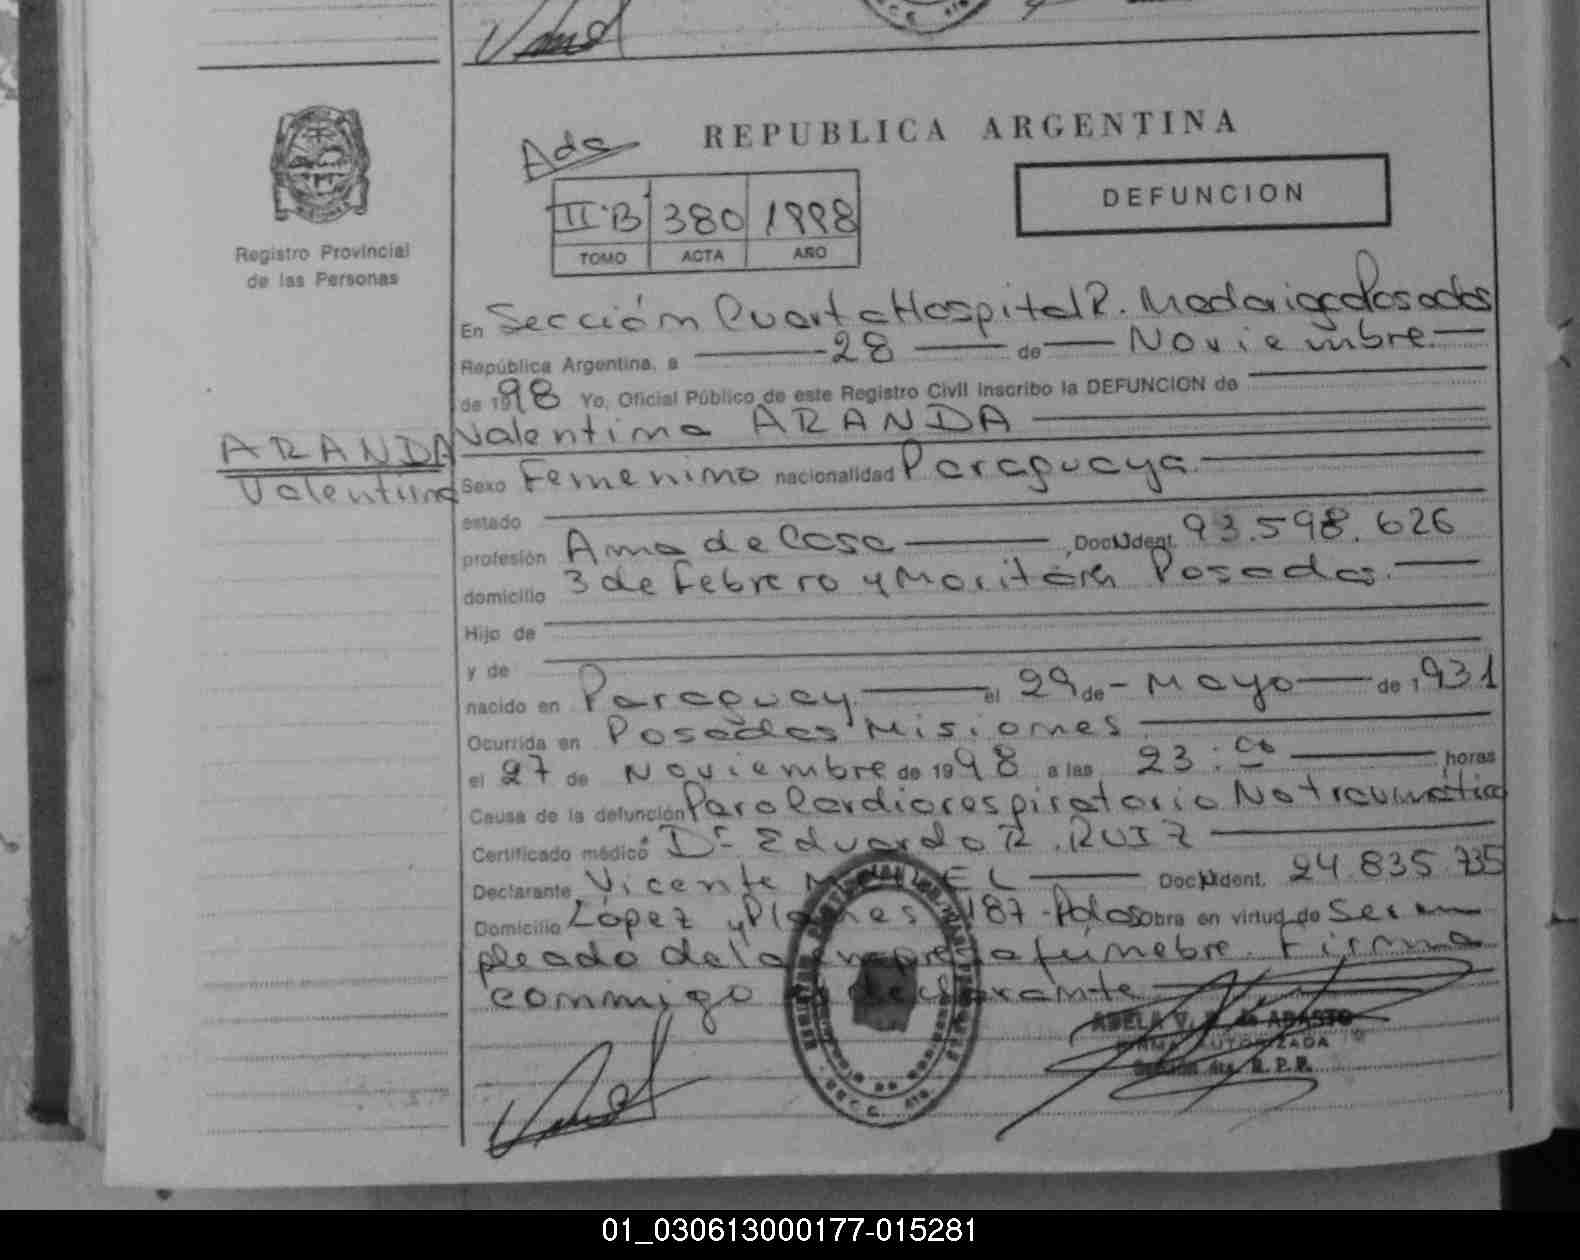 REPUBLICA ARGENTINA
DEFUNCION
II·B 380 1998
TOMO ACTA AÑO
Registro Provincial
de las Personas
En Sección Cuarta Hospital R. Madariaga Posadas
República Argentina, a 28 de Noviembre
de 1998 Yo, Oficial Público de este Registro Civil Inscribo la DEFUNCION de
Valentina ARANDA
ARANDA
Valentina
Sexo Femenino nacionalidad Paraguaya
estado
profesión Ama de Casa Doc. Ident. 93.598.626
domicilio 3 de Febrero y Posadas.
Hijo de
y de
nacido en Paraguay el 29 de Mayo de 1931
Ocurrida en Posadas Misiones
el 27 de Noviembre de 1998 a las 23:00 horas
Causa de la defunción Paro Cardiorespiratorio No traumático
Certificado médico Dr Eduardo R. RUIZ
Declarante Vicente Doc. Ident. 24.835.735
Domicilio López y Planes 187 - Pdas obra en virtud de Ser em
pleado de la empresa fúnebre. Firma
conmigo el declarante
ADELA V. de ABASTO
FIRMA AUTORIZADA
Sección 4ta R.P.P.
01_030613000177-015281